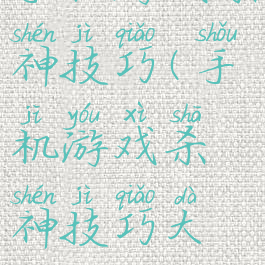 shén jì qiǎo shǒu
神技巧(手
jī yóu xì shā
机游戏杀
shén jì qiǎo dà
神技巧大